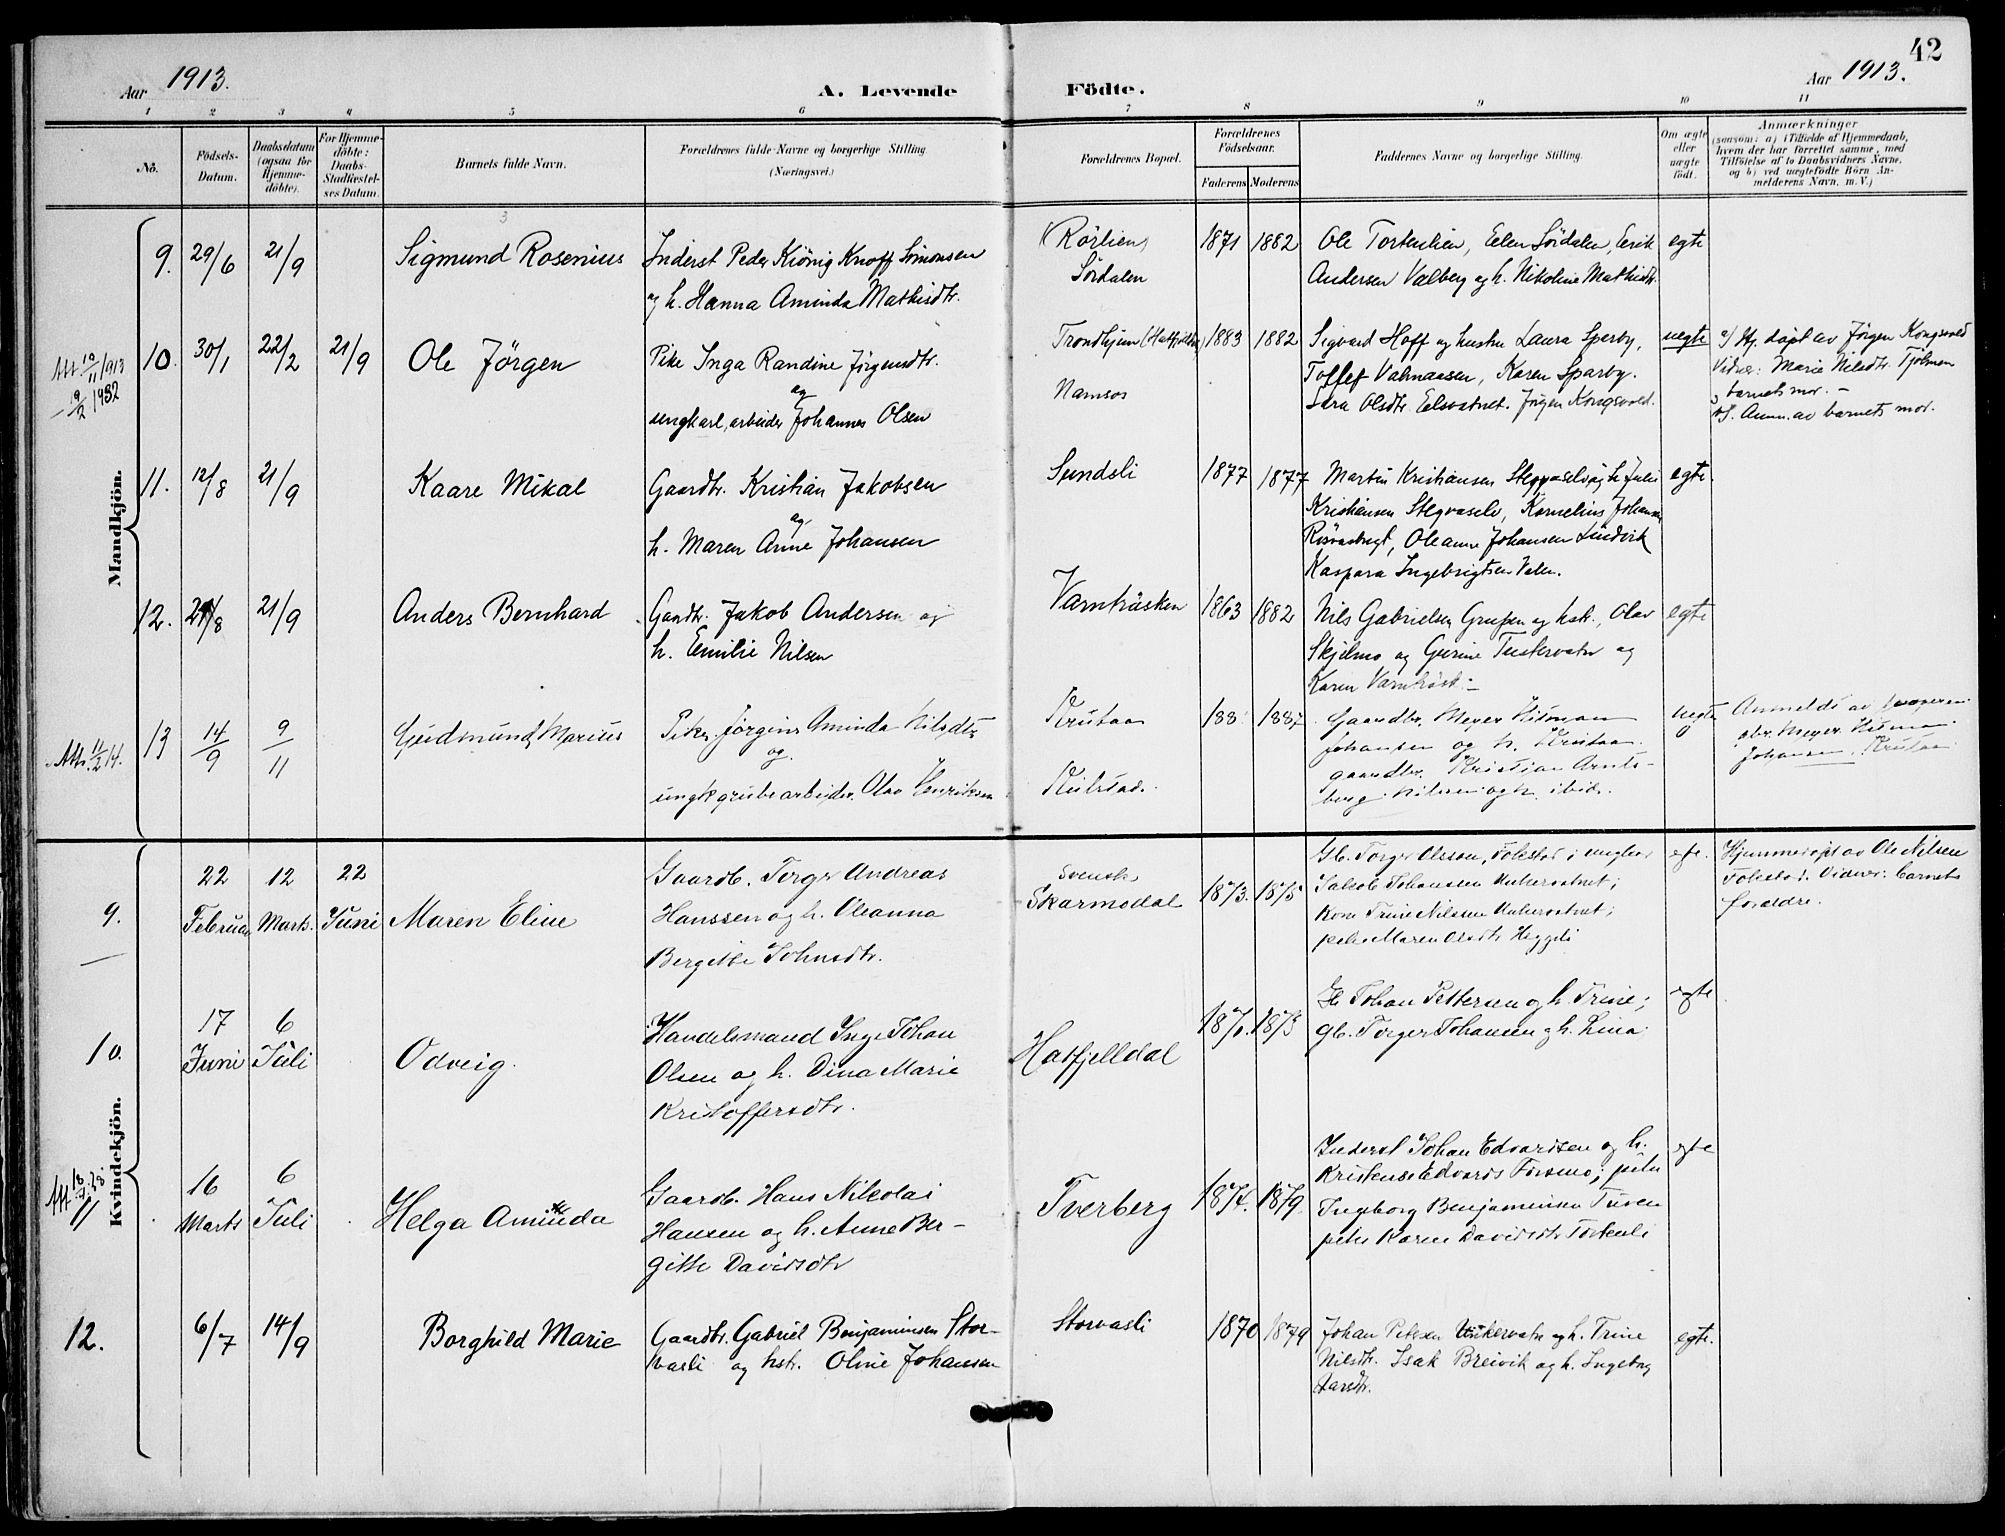 42
Aar 1913.
A. Levende Födte.
Aar 1913.
1 2 3 4 5 6 7 8 9 10 11
No.
Födsels-
Datum.
Daabsdatum
(ogsaa for
Hjemme-
döbte).
For Hjemme-
döbte:
Daabs-
Stadfæstel-
ses Datum.
Barnets fulde Navn.
Forældrenes fulde Navne og borgerlige Stilling
(Næringsvei.)
Forældrenes Bopæl.
Forældrenes
Födselsaar.
Faderens Moderens
Faddernes Navne og borgerlige Stilling.
Om ægte
eller
uægte
födt.
Anmærkninger
(saasom: a) i Tilfælde af Hjemmedaab,
hvem der har forrettet samme, med
Tilföielse af to Daabsvidners Navne,
og b) ved uægtefödte Börn An-
melderens Navn, m. V.)
Mandkjön.
9. 29/6 21/9
Sigmund Rosenius
Inderst Peder Kiönig Knoff Simonsen
og h. Hanna Aminda Mathisdtr.
Rörlien
Sördalen
1871 1882
Ole Tortenlien, Elen Sördalen, Eerik
Andersen Valberg og h. Nikoline Mathisdtr.
egte
Att. 10/11 1913
19/2 1932
10. 30/1 22/2 21/9
Ole Jörgen
Pike Inga Randine Jörgensdtr.
og
ungkarl, arbeider Johannes Olsen
Trondhjem
Namsos
1883 1882
Sigvard Hoff og hustru Laura Sparby,
Toffef Valmaasen, Karen Sparby.
Sara Olsdtr. Eelsvatnet. Jörgen Kongsvold.
uegte
a/ Hj. döpt av Jörgen Kongsvold
Vidner: Marie Nilsdtr. Tjolmen
barnets mor. –
Anm. av barnets mor.
11. 12/8 21/9
Kaare Mikal
Gaardbr. Kristian Jakobsen
og
h. Maren Anne Johansen
Sundsli
1877 1877
Martin Kristiansen og h. Juli
Kristiansen Stegvaselv, Kornelius Johansen
Oleanna Johansen Lindvik
Kaspara Ingebrigtsen Valen.
egte.
12. 21/9
Anders Bernhard
Gardbr. Jakob Andersen og
h. Emilie Nilsen
Varntræsken
1863 1882
Nils Gabrielsen Gruben og hstr., Olav
Skjelmo og Gurine Tustervatn og
Karen Varntræsk. –
egte
Att. 11/2 14.
13 14/9 9/11
Gudmund Marius
Pike. Jörgine Aminda Nilsdtr
og.
ungk. grubearbejder. Olav Henriksen
Krutaa
188 1887
Gaardbr. Meyer Hitman
Johansen og h. Krutaa.
gaardbr. Kristian Arnts-
berg Nilsen og h. ibid.
uegte
Anmeldt av
gbr. Meyer
Johansen. Krutaa
Kvindekjön.
9. 22 Februar 12 Marts. 22 Juni
Maren Eline
Gaardb. Torger Andreas
Hanssen og h. Oleanna
Bergitte Johnsdtr.
Svensk,
Skarmodal
1873. 1875
Gb. Torger Olsson, Tolestad;
Jakob Johansen Unkervatnet;
Kone Trine Nilsen Unkervatnet;
pike Maren Olsdtr Heggeli
egte.
Hjemmedöpt av Ole Nilsen
Tolestad. Vidner: barnets
forældre.
10. 17 Juni 6 Juli
Odveig.
Handelsmand Inge Johan
Olsen og h. Dina Marie
Kristoffersdtr.
Hatfjelldal
187 1873
Johan Pettersen og h. Trine;
gb. Torger Johansen og h. Lina
egte
Att 18
11 16 Marts 6 Juli
Helga Aminda
Gaardb. Hans Nikolai
Hansen og h. Anne Ber-
gitte Davidsdtr
Tverberg
1874. 1879
Inderst Johan Edvardsen og h.
Kristense Edvards Forsmo; pike
Ingeborg Benjaminsen Tuven
pike Karen Davidsdtr Tortenli
egte
12. 6/7 14/9
Borghild Marie
Gaardbr. Gabriel Benjaminsen Stor-
vasli og hstr. Oline Johansen
Storvasli
1870 1879
Johan Petersen Unkervatn og h. Trine
Nilsdtr. Isak Breivik og h. Ingeborg
Larsdtr.
egte.